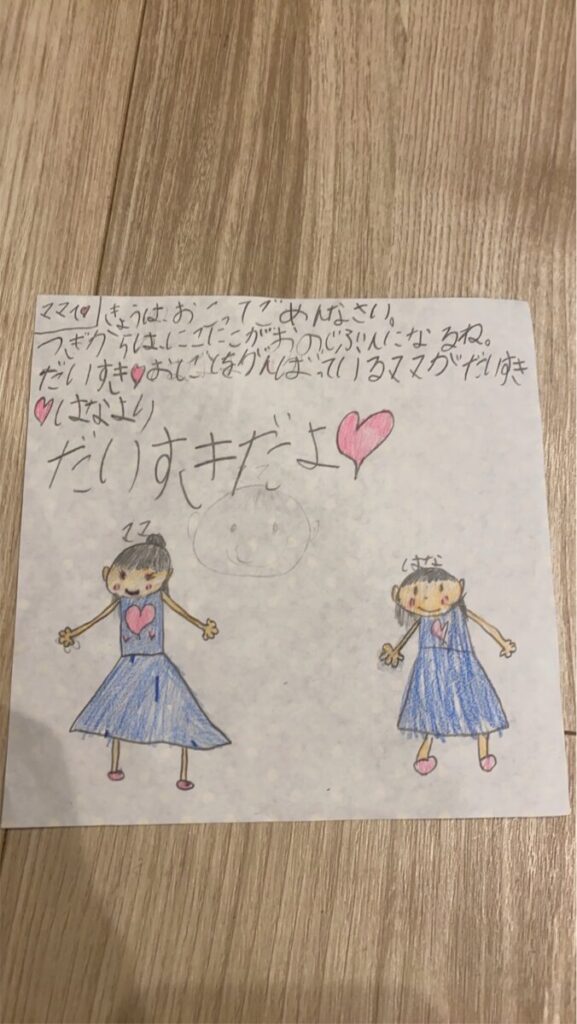 ママへ♥ きょうは、おこってごめんなさい。
つぎからは、にこにこがおのじぶんになるね。
だいすき♥おしごとをがんばっているママがだいすき
♥はなより
だいすきだよ♥
ママ
はな